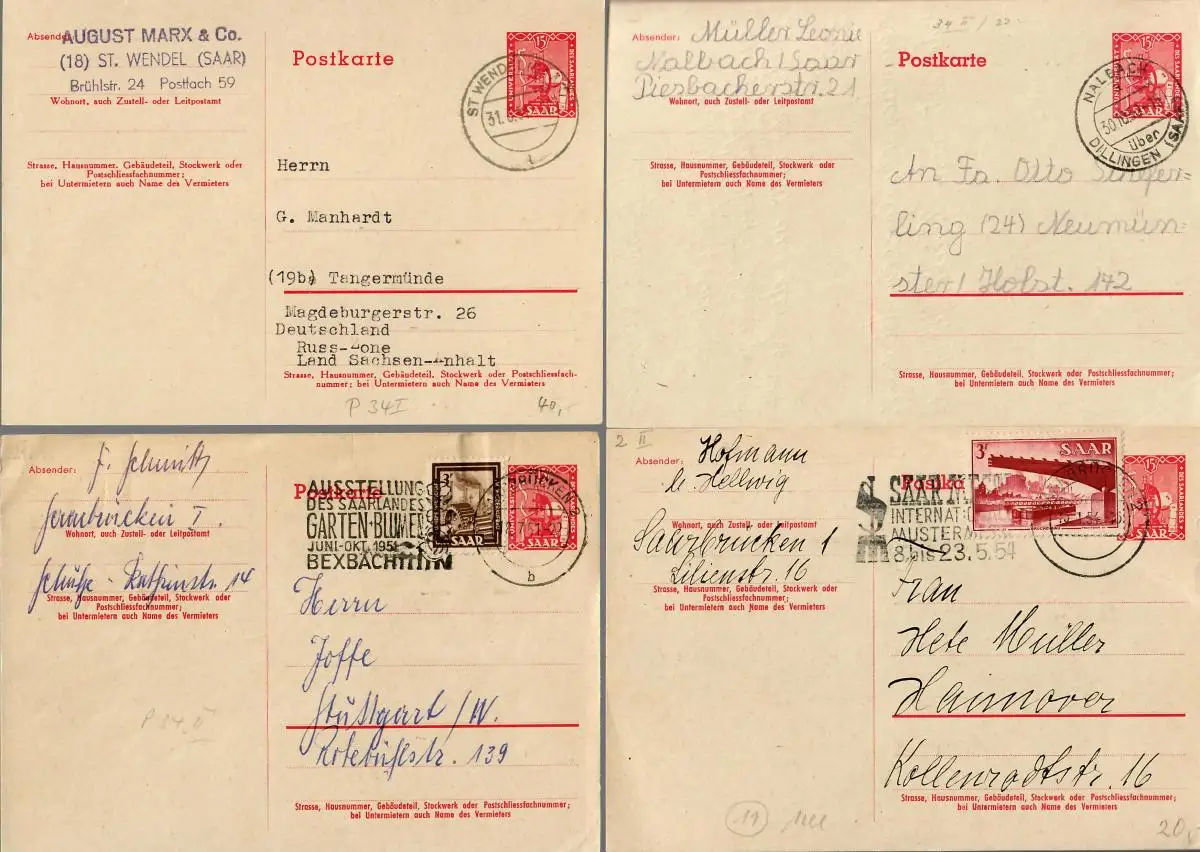 Absender:
AUGUST MARX & Co.
(18) ST. WENDEL (SAAR)
Brühlstr. 24 Postfach 59
Wohnort, auch Zustell- oder Leitpostamt
Strasse, Hausnummer, Gebäudeteil, Stockwerk oder
Postschliessfachnummer;
bei Untermietern auch Name des Vermieters
Postkarte
15
UNIVERSITÄT
DES SAARLANDES
SAAR
ST WENDEL
31.
Herrn
G. Manhardt
(19b) Tangermünde
Magdeburgerstr. 26
Deutschland
Russ-one
Land Sachsen-nhalt
Strasse, Hausnummer, Gebäudeteil, Stockwerk oder Postschliessfach-
nummer; bei Untermietern auch Name des Vermieters
P 34 I
40,-
Absender:
Müller Leonie
Nalbach/Saar
Piesbacherstr. 21
Wohnort, auch Zustell- oder Leitpostamt
Strasse, Hausnummer, Gebäudeteil, Stockwerk oder
Postschliessfachnummer;
bei Untermietern auch Name des Vermieters
34 II
Postkarte
15
UNIVERSITÄT
DES SAARLANDES
SAAR
NALBACH
über
DILLINGEN (SAAR
An Fa. Otto
ling (24) Neumün-
ster/Holst. 172
Strasse, Hausnummer, Gebäudeteil, Stockwerk oder Postschliessfachnummer;
bei Untermietern auch Name des Vermieters
Absender:
J. Schmitt
Saarbrücken I.
Wohnort, auch Zustell- oder Leitpostamt
14
Strasse, Hausnummer, Gebäudeteil, Stockwerk oder
Postschliessfachnummer;
bei Untermietern auch Name des Vermieters
P 34 II
Postkarte
AUSSTELLUNG
DES SAARLANDES
GARTEN·BLUMEN
JUNI-OKT. 1951
BEXBACH
3
SAAR
BRÜCKEN 2
b
DES SAARLANDES
SAAR
Herrn
Joffe
Stuttgart/W.
Rotebühlstr. 139
Strasse, Hausnummer, Gebäudeteil, Stockwerk oder Postschliessfachnummer;
bei Untermietern auch Name des Vermieters
2 II
Absender:
Hofmann
b. Hellwig
Wohnort, auch Zustell- oder Leitpostamt
Saarbrücken 1
Lilienstr. 16
Strasse, Hausnummer, Gebäudeteil, Stockwerk oder
Postschliessfachnummer;
bei Untermietern auch Name des Vermieters
Postka
SAARMES
INTERNAT
MUSTERM
8 bis 23.5.54
3F
SAAR
15
DES SAARLANDES
SAAR
Frau
Hete Müller
Hannover
Kollenrodtstr. 16
Strasse, Hausnummer, Gebäudeteil, Stockwerk oder Postschliessfachnummer;
bei Untermietern auch Name des Vermieters
11
20,-